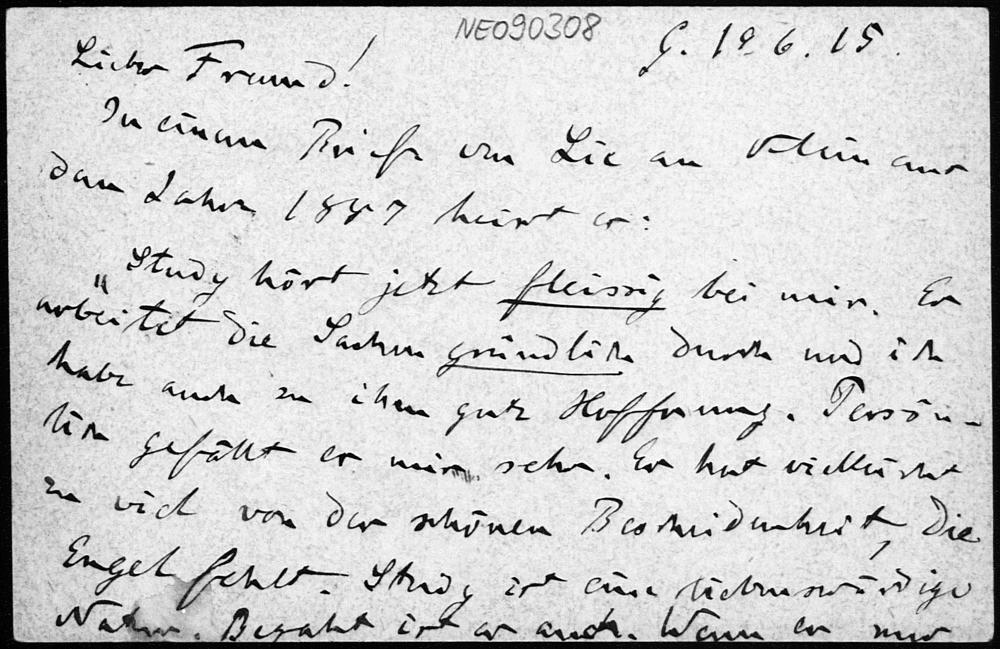 NE090308
G. 19.6.15.
Lieber Freund!
In einem Briefe von Lie an Klein aus
dem Jahre 1887 heisst es:
„Study hört jetzt fleissig bei mir. Er
arbeitet die Sachen gründlich durch und ich
habe auch zu ihm gute Hoffnung. Persön-
lich gefällt er mir sehr. Er hat vielleicht
zu viel von der schönen Bescheidenheit, die
Engel fehlt. Study ist eine liebenswürdige
Natur. Begabt ist er auch. Wenn er nur